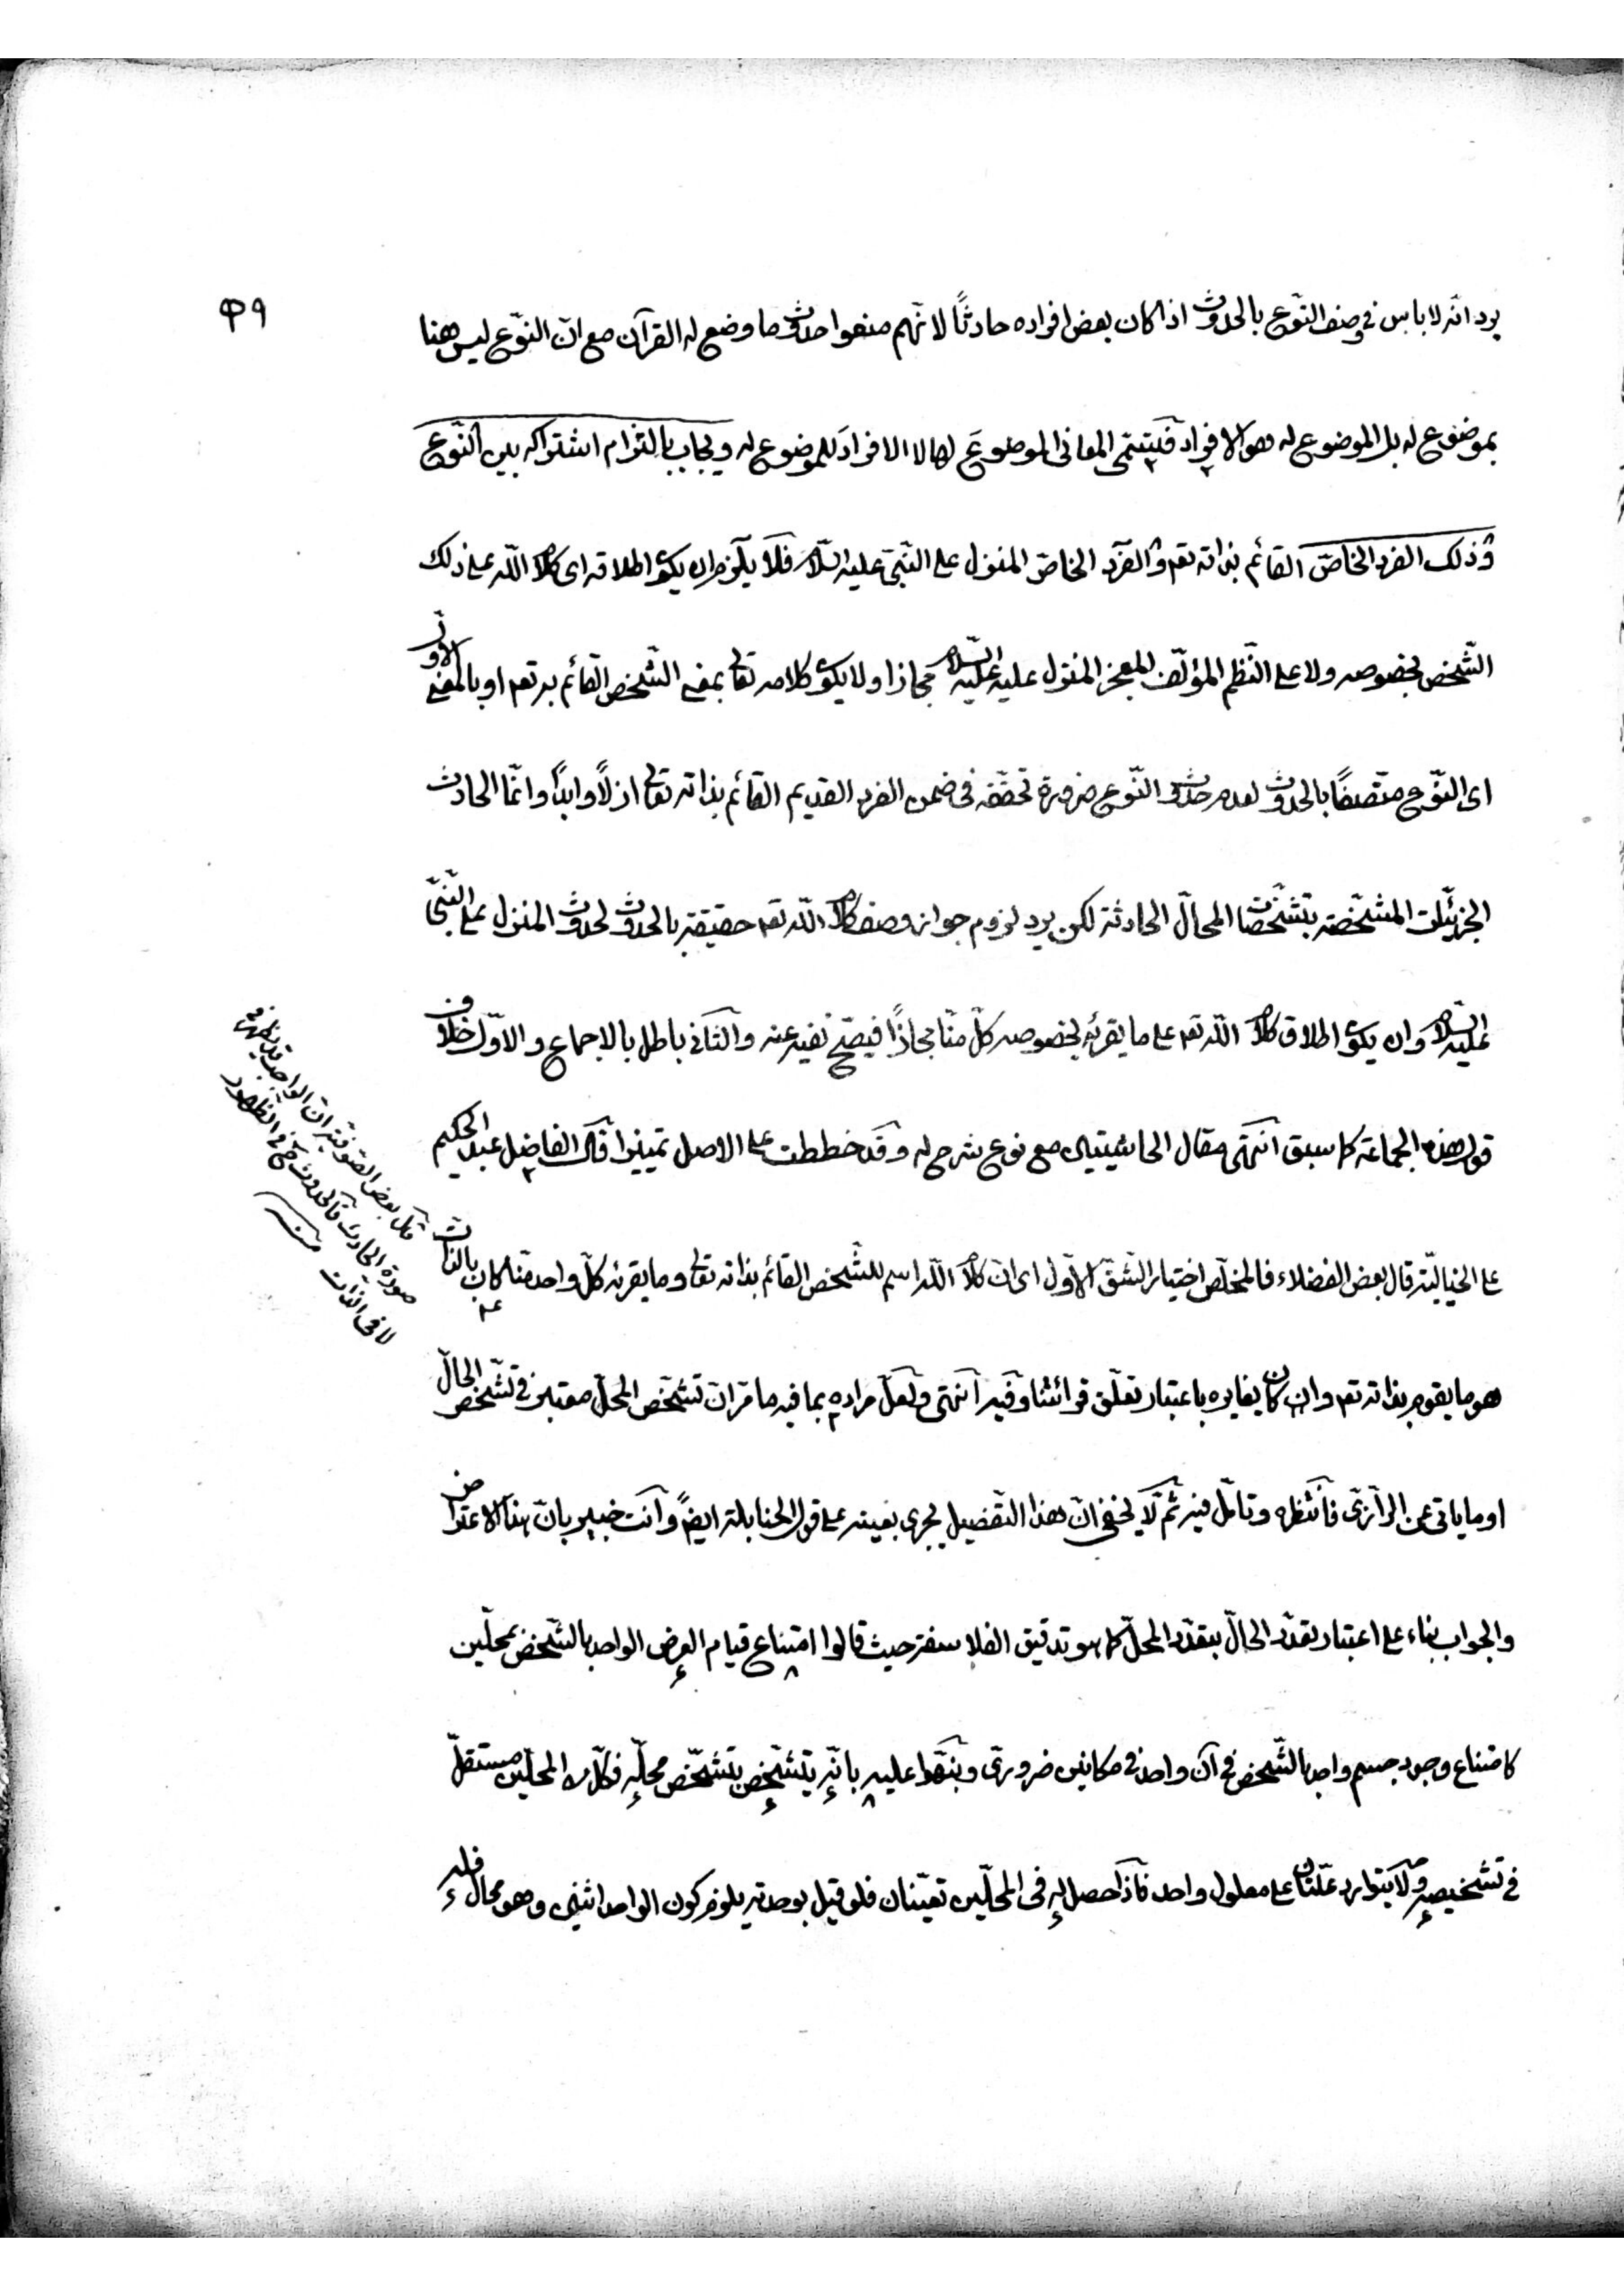 ٤٩
يرد انّه لا باس في وصف النّوع بالحدوث اذا كان بعض افراده حادثًا لانّهم منعوا حدوث ما وضع له القرآن مع انّ النّوع ليس هنا
بموضوع له بل الموضوع له وهو الافراد المعاني الموضوع لها لا الافراد للموضوع له ويجاب بالتزام اشتراكه بين النّوع
وذلك الفرد الخاصّ القائم بذاته تعم والفرد الخاصّ المنزل على النّبيّ عليه السّلام فلا يلزم ان يكون اطلاقه اى كلام اللّه على ذلك
الشّخص بخصوصه ولا على النّظم المؤلّف المعجز المنزل عليه عليه السّلام مجازا ولا يكون كلامه تعالى بمعنى الشّخص القائم به تعم او بالمعنى الاوّل
اى النّوع متّصفًا بالحدوث لعدم حدوث النّوع ضرورة تحقّقه في ضمن الفرد القديم القائم بذاته تعالى ازلاً وابدًا وانّما الحادث
الجزئيّات المشخّصة بتشخّصات المحالّ الحادثة لكن يرد لزوم جواز وصف كلام اللّه تعم حقيقة بالحدوث لحدوث المنزل على النّبيّ
عليه السّلام وان يكون اطلاق كلام اللّه تعم على ما يقرئه بخصوصه كلّ منّا مجازاً فيصحّ نفيه عنه والثّاني باطل بالاجماع والاوّل خلاف
قول هذه الجماعة كما سبق انتهى مقال الحاشيتين مع نوع شرح له وقد خططت على الاصل تمييزا قال الفاضل عبد الحكيم
على الخياليّة قال بعض الفضلاء فالمخلّص اختيار الشّقّ الاوّل اى انّ كلام اللّه اسم للشّخص القائم بذاته تعالى وما يقرئه كلّ واحد منّا كان بالذّات
هو ما يقوم بذاته تعم وان كان يغايره باعتبار تعلّق قرائتنا وفيه انتهى ولعلّ مراده بما فيه ما مرّ انّ تشخّص المحلّ معتبر في تشخّص الحالّ
او ما ياتى عن الرّازيّ فانتظره وتامّل فيه ثمّ لا يخفى انّ هذا التّفصيل يجرى بعينه على قول الحنابلة ايضً وانت خبير بانّ هذا الاعتراض
والجواب بناء على اعتبار تعدّد الحالّ بتعدّد المحلّ كما هو تدقيق الفلاسفة حيث قالوا امتناع قيام العرض الواحد بالشّخص بمحلّين
كامتناع وجود جسم واحد بالشّخص في آن واحد في مكانين ضروريّ ونبّهوا عليه بانّه يتشخّص بتشخّص محلّه فكلّ من المحلّين مستقلّ
في تشخيصه ولا يتوارد علّتان على معلول واحد فاذا حصل له في المحلّين تعيّنان فلو قيل بوحدته يلزم كون الواحد اثنين وهو محال فله
قال بعض الصّوفيّة انّ الواجب قد يظهر في
صورة الحادث فالحدوث في الظّهور
لا في الذّات منه